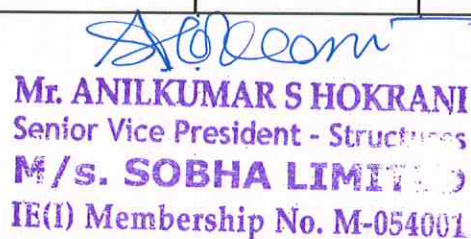 Mr. ANILKUMAR S HOKRANI
Senior Vice President - Structures
M/s. SOBHA LIMITED
IE(I) Membership No. M-054001